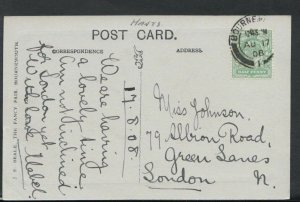 Hants
POST CARD.
CORRESPONDENCE
ADDRESS.
BOURNEM
AU 17
08
HALF PENNY
We are having
a lovely time.
Am not inclined
for London yet
With love Mabel.
17.8.08.
Miss Johnson,
79 Albion Road,
Green Lanes
London N.
J. E. BEALE, THE FANCY FAIR, BOURNEMOUTH.